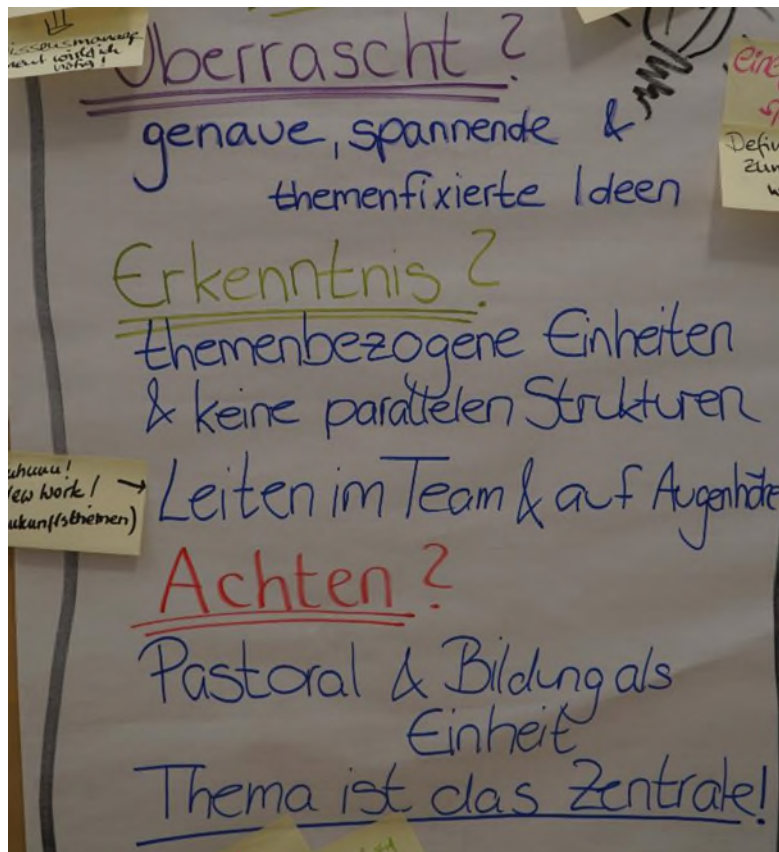 nötig!
Überrascht?
genaue, spannende &
themenfixierte Ideen
eine
Erkenntnis?
themenbezogene Einheiten
& keine parallelen Strukturen
Leiten im Team & auf Augenhöhe
Achten?
Pastoral & Bildung als
Einheit
Thema ist das Zentrale!